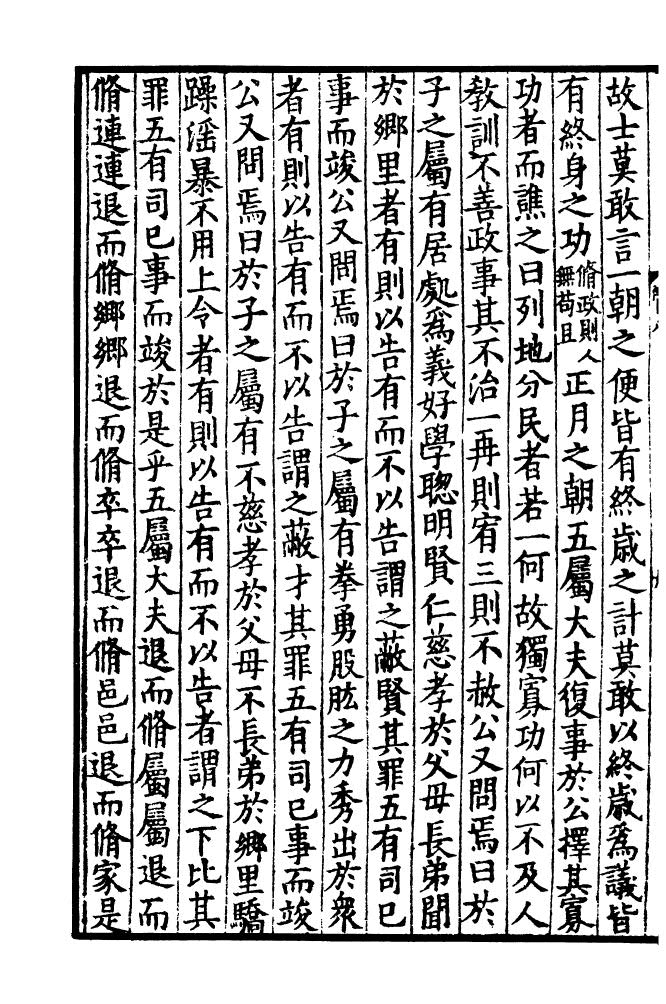 故士莫敢言一朝之便皆有終歳之計莫敢以終歳爲議皆
有終身之功脩政則人無苟且正月之朝五屬大夫復事於公擇其寡
功者而譙之曰列地分民者若一何故獨寡功何以不及人
敎訓不善政事其不治一再則宥三則不赦公又問焉曰於
子之屬有居處爲義好學聰明賢仁慈孝於父母長弟聞
於鄉里者有則以告有而不以告謂之蔽賢其罪五有司已
事而竣公又問焉曰於子之屬有拳勇股肱之力秀出於衆
者有則以告有而不以告謂之蔽才其罪五有司已事而竣
公又問焉曰於子之屬有不慈孝於父母不長弟於鄉里驕
躁淫暴不用上令者有則以告有而不以告者謂之下比其
罪五有司已事而竣於是乎五屬大夫退而脩屬屬退而
脩連連退而脩鄉鄉退而脩卒卒退而脩邑邑退而脩家是